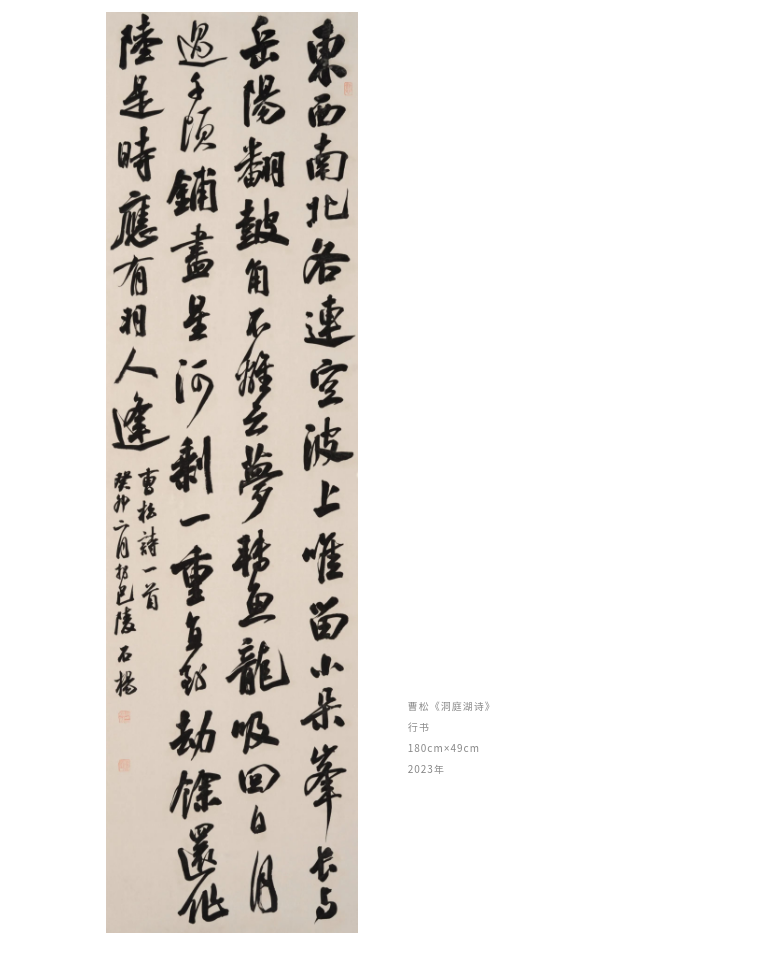 東西南北各連空波上唯留小朵峯长与
岳陽翻鼓角不離云夢轉魚龍吸回日月
過千頃鋪盡星河剩一重直到劫餘還作
陸是時應有羽人逢
曹松詩一首
癸卯二月於巴陵石楊
曹松《洞庭湖诗》
行书
180cm×49cm
2023年